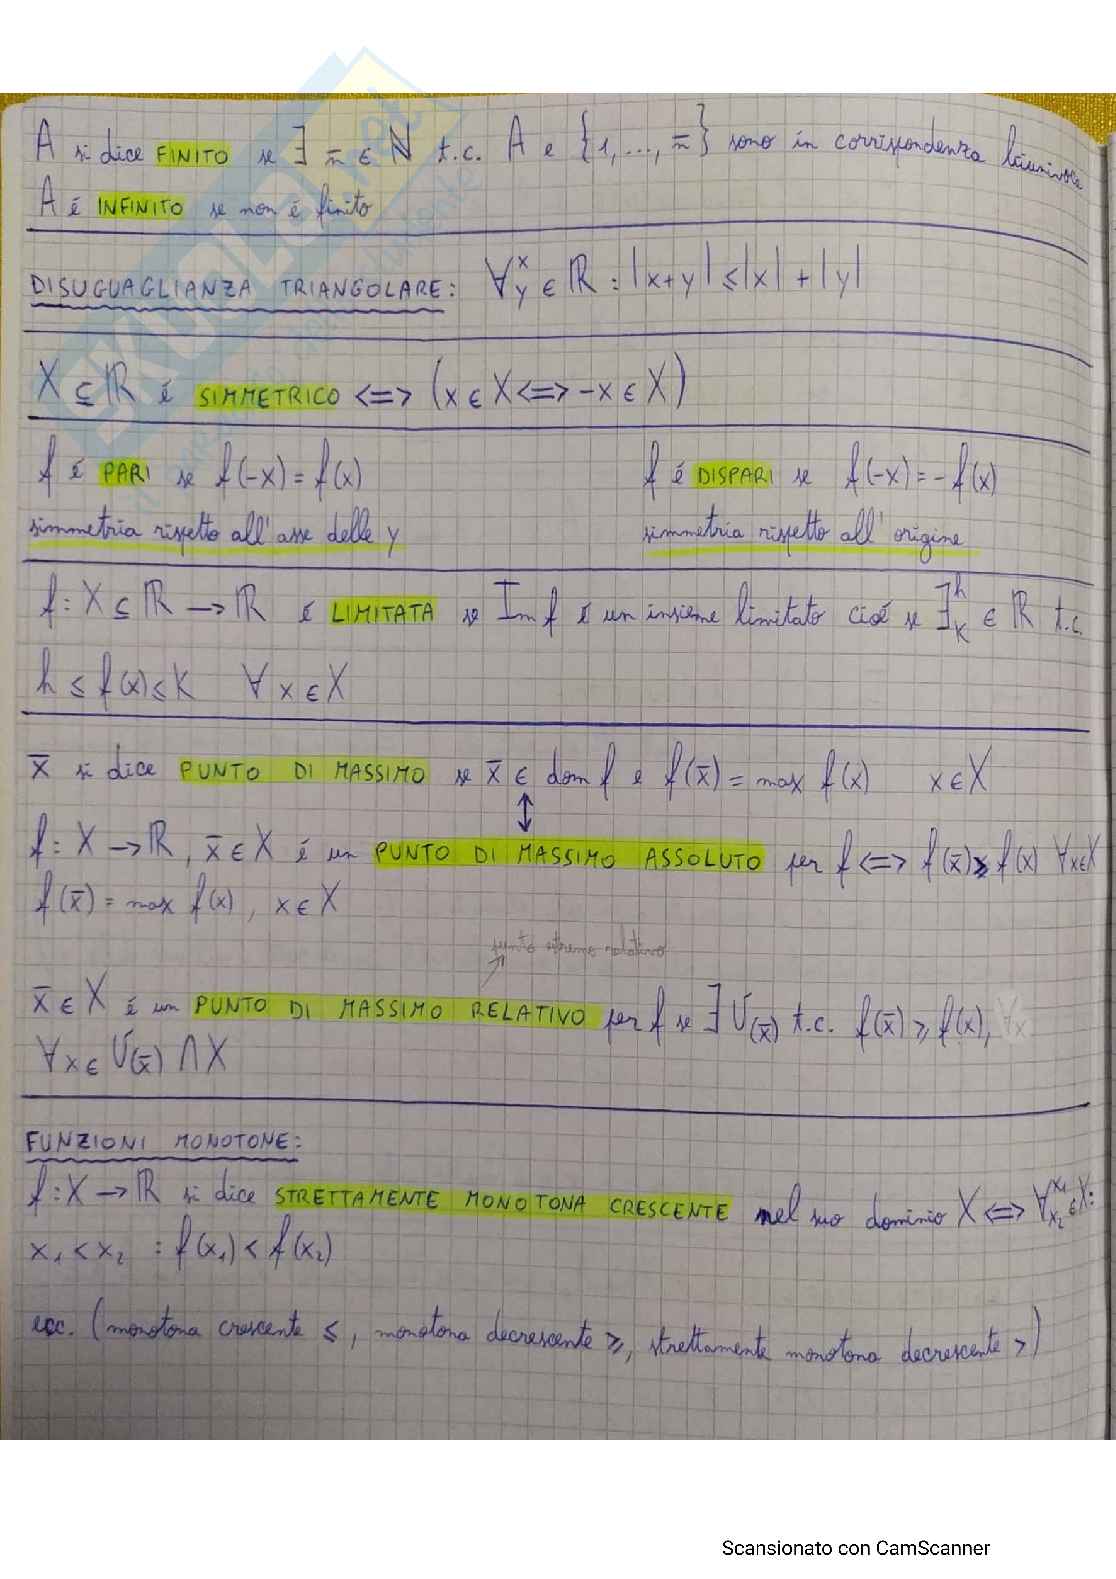 A si dice FINITO se ∃ n̄ ∈ ℕ t.c. A e {1,...,n̄} sono in corrispondenza biunivoca
A é INFINITO se non é finito
DISUGUAGLIANZA TRIANGOLARE: ∀ x y ∈ ℝ : |x+y| ≤ |x| + |y|
X ⊆ ℝ é SIMMETRICO <=> (x ∈ X <=> -x ∈ X)
f é PARI se f(-x) = f(x) f é DISPARI se f(-x) = -f(x)
simmetria rispetto all'asse delle y simmetria rispetto all'origine
f: X ⊆ ℝ → ℝ é LIMITATA se Im f é un insieme limitato cioé se ∃ h K ∈ ℝ t.c.
h ≤ f(x) ≤ K ∀ x ∈ X
x̄ si dice PUNTO DI MASSIMO se x̄ ∈ dom f e f(x̄) = max f(x) x ∈ X
↕
f: X → ℝ, x̄ ∈ X é un PUNTO DI MASSIMO ASSOLUTO per f <=> f(x̄) ≥ f(x) ∀x∈X
f(x̄) = max f(x), x ∈ X
punto estremo relativo
x̄ ∈ X é un PUNTO DI MASSIMO RELATIVO per f se ∃ U(x̄) t.c. f(x̄) ≥ f(x), ∀x
∀x ∈ U(x̄) ∩ X
FUNZIONI MONOTONE:
f: X → ℝ si dice STRETTAMENTE MONOTONA CRESCENTE nel suo dominio X <=> ∀ x₁ x₂ ∈ X:
x₁ < x₂ : f(x₁) < f(x₂)
ecc. (monotona crescente ≤, monotona decrescente ≥, strettamente monotona decrescente >)
Scansionato con CamScanner